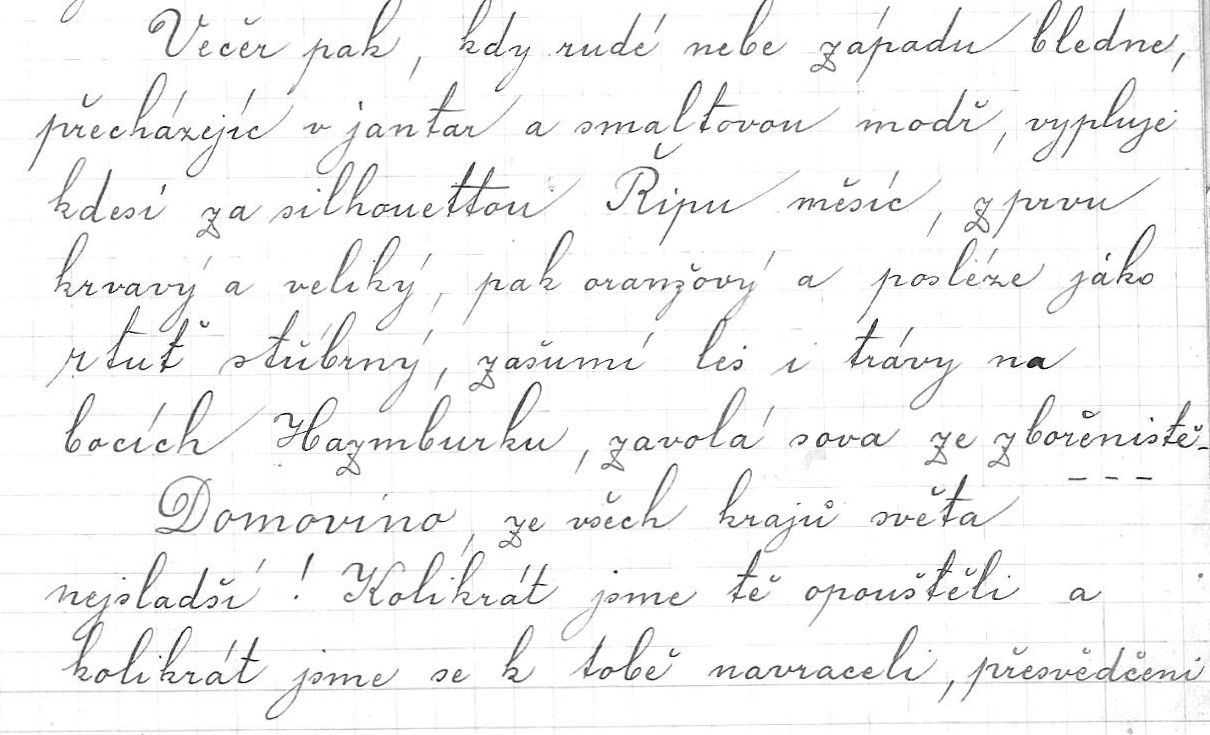 Večer pak, kdy rudé nebe západu bledne,
přecházejíc v jantar a smaltovou modř, vypluje
kdesi za silhouettou Řipu měsíc, zprvu
krvavý a veliký, pak oranžový a posléze jako
rtuť stříbrný, zašumí les i trávy na
bocích Hazmburku, zavolá sova ze zbořeniště-
---
Domovino, ze všech krajů světa
nejsladší! Kolikrát jsme tě opouštěli a
kolikrát jsme se k tobě navraceli, přesvědčeni